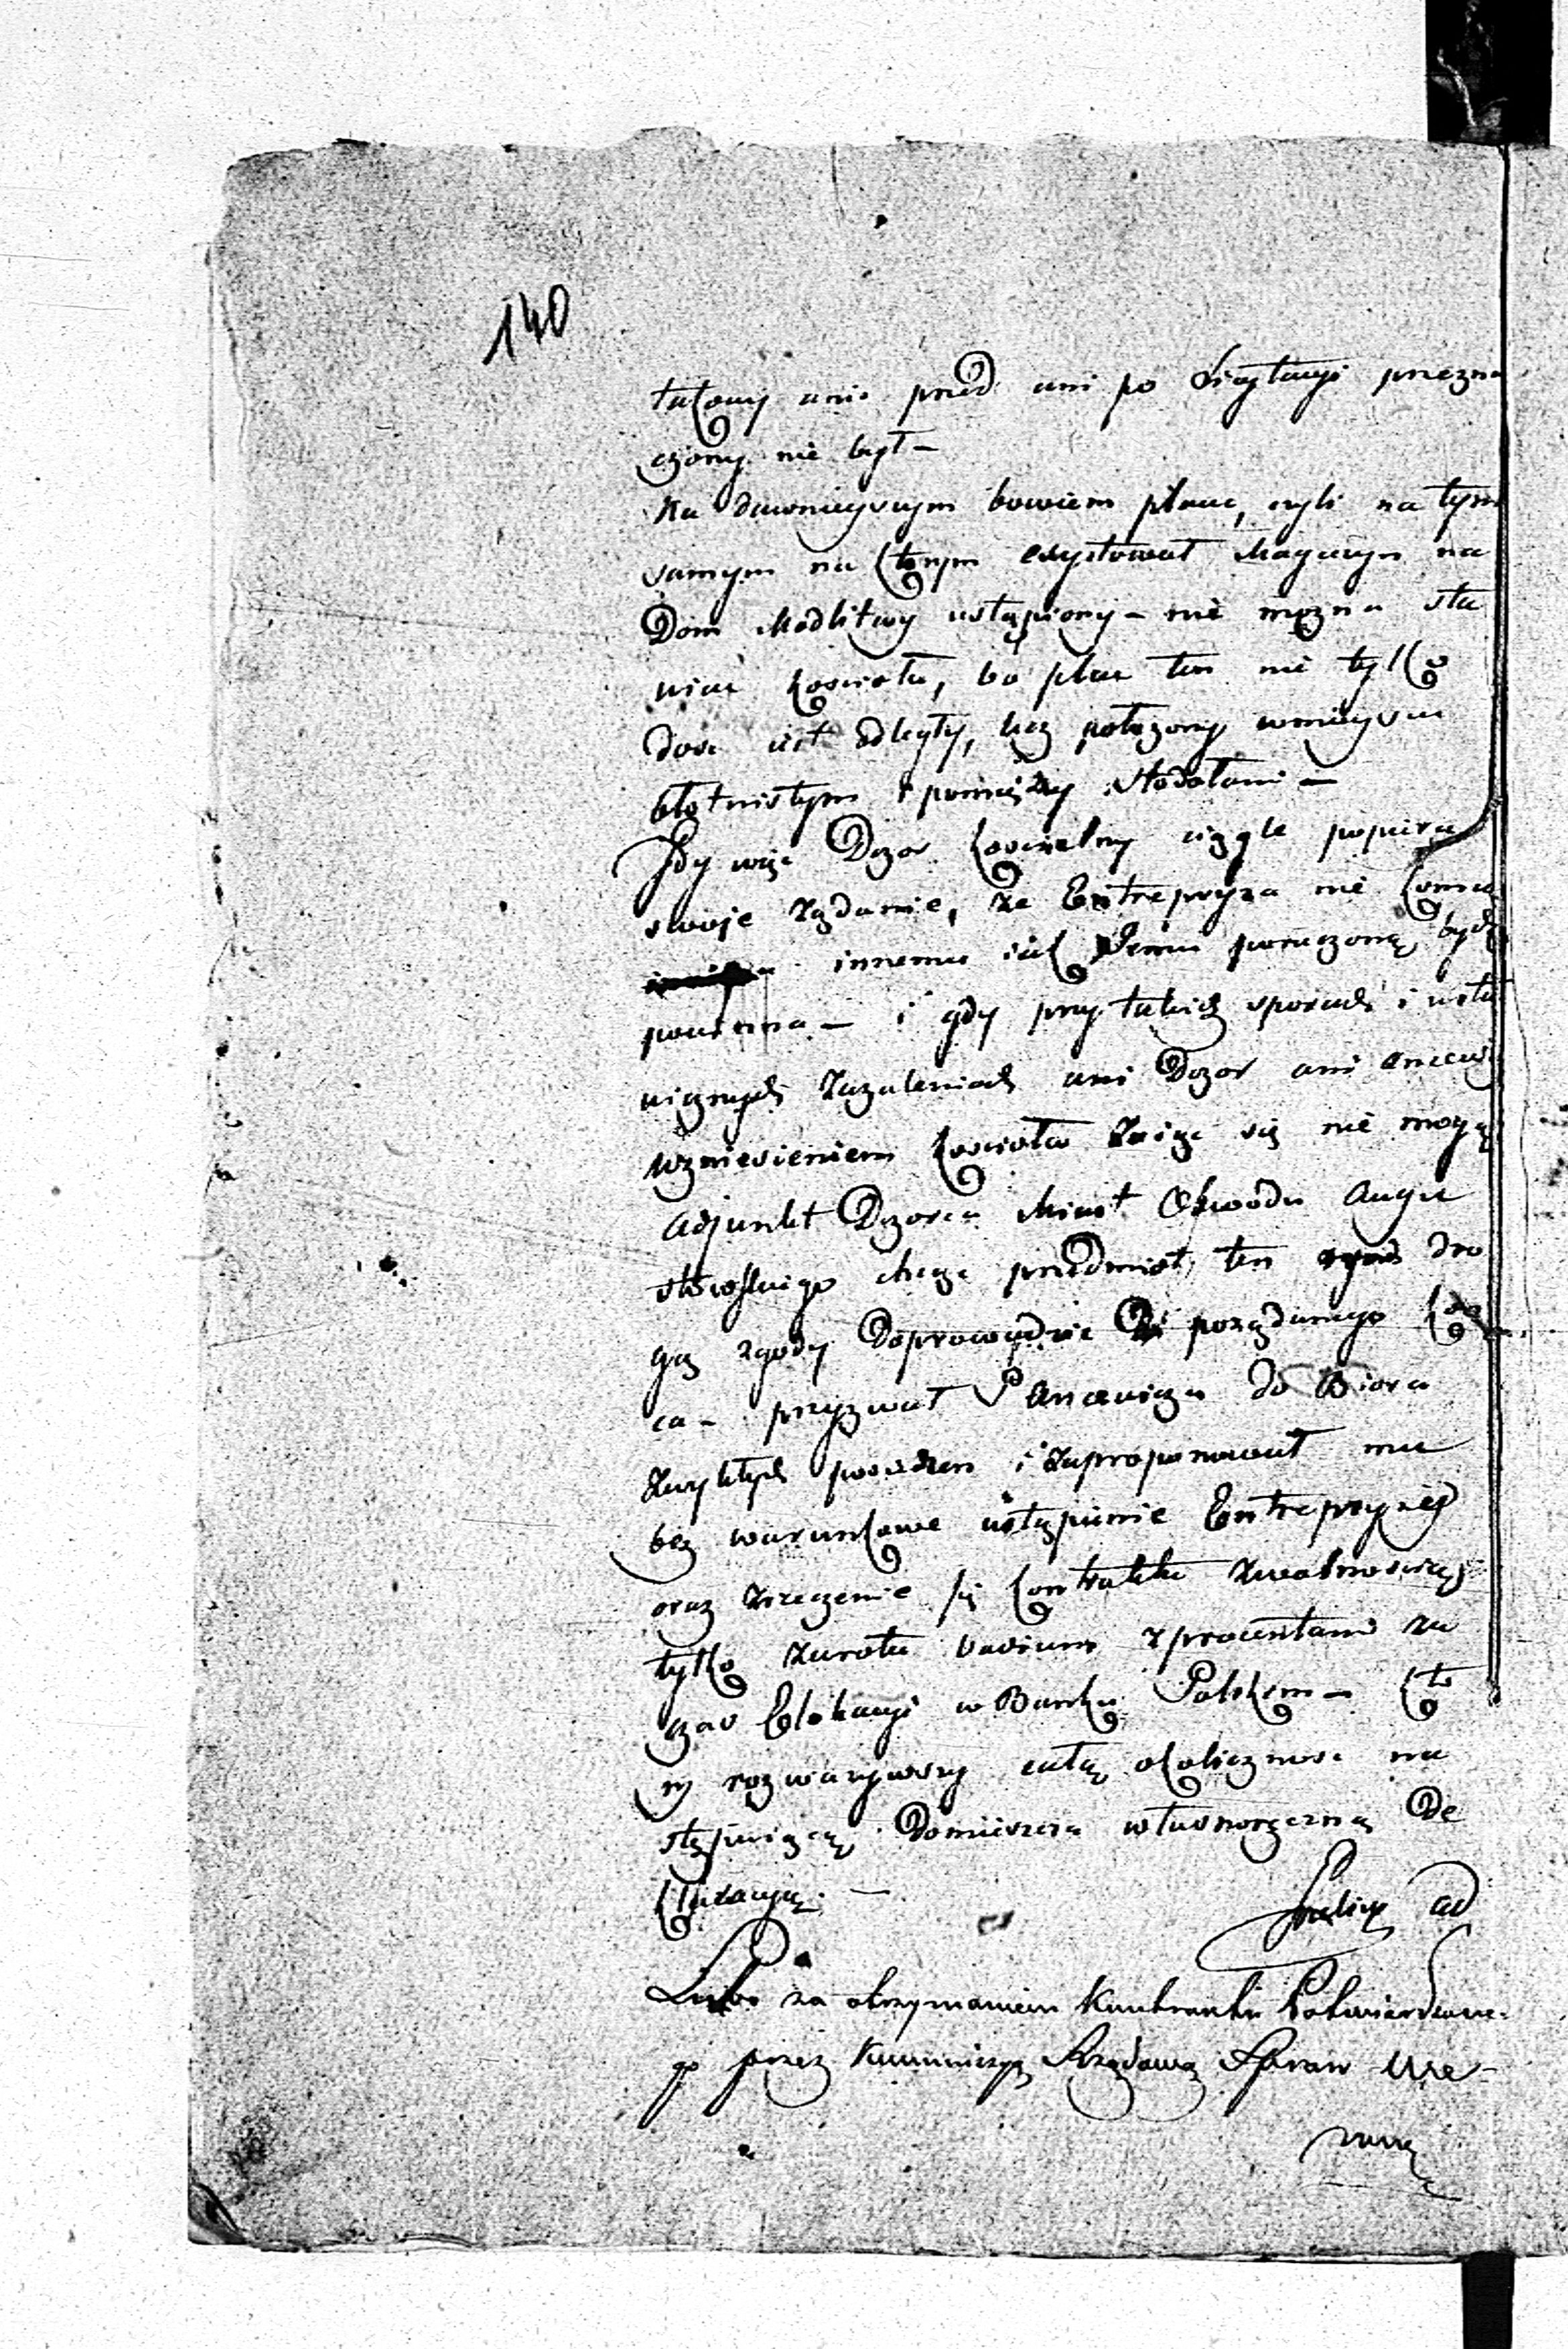 140
takowy ani przed ani po Licytacyi przezna
czony nie był –
Na dawnieyszym bowiem placu, czyli na tym
samym na ktorym exystował Magazyn na
Dom Modlitwy ustąpiony – nie można sta
wiać koscioła, bo plac ten nie tylko
dosc iest odległy, lecz położony w mieyscu
błotnistym i pomiędzy stodołami –
Gdy więc Dozor koscielny ciągle popiera
swoje żądanie, że Entrepryza nie komu
innemu iak Jemu poruczoną bydz
powinna – i gdy przy takich sporach i usta
wicznych zażaleniach ani Dozor ani Ancewicz
wzniesieniem koscioła zaiąć się nie mogą
Adjunkt Dozorca Miast Obwodu Augu
stowskiego chcąc przedmiot ten dro
gą zgody doprowadzić do pożądanego kon
ca – przyzwał P Ancewicza do Biora
zwykłych posiedzen i zaproponował mu
bez warunkowe ustąpienie Entrepryzy
oraz zrzeczenie się kontraktu z wolnoscią
tylko zwrotu vadium z procentami za
czas Elokacyi w Banku Polskim – kto
ry rozważywszy całą okolicznosc na
stępuiącą domieszcza własnoręczną De
klaracyą. –
Lubo za otrzymaniem Kontraktu Potwierdzone-
go przez Kommissyą Rządową Spraw We-
wnę